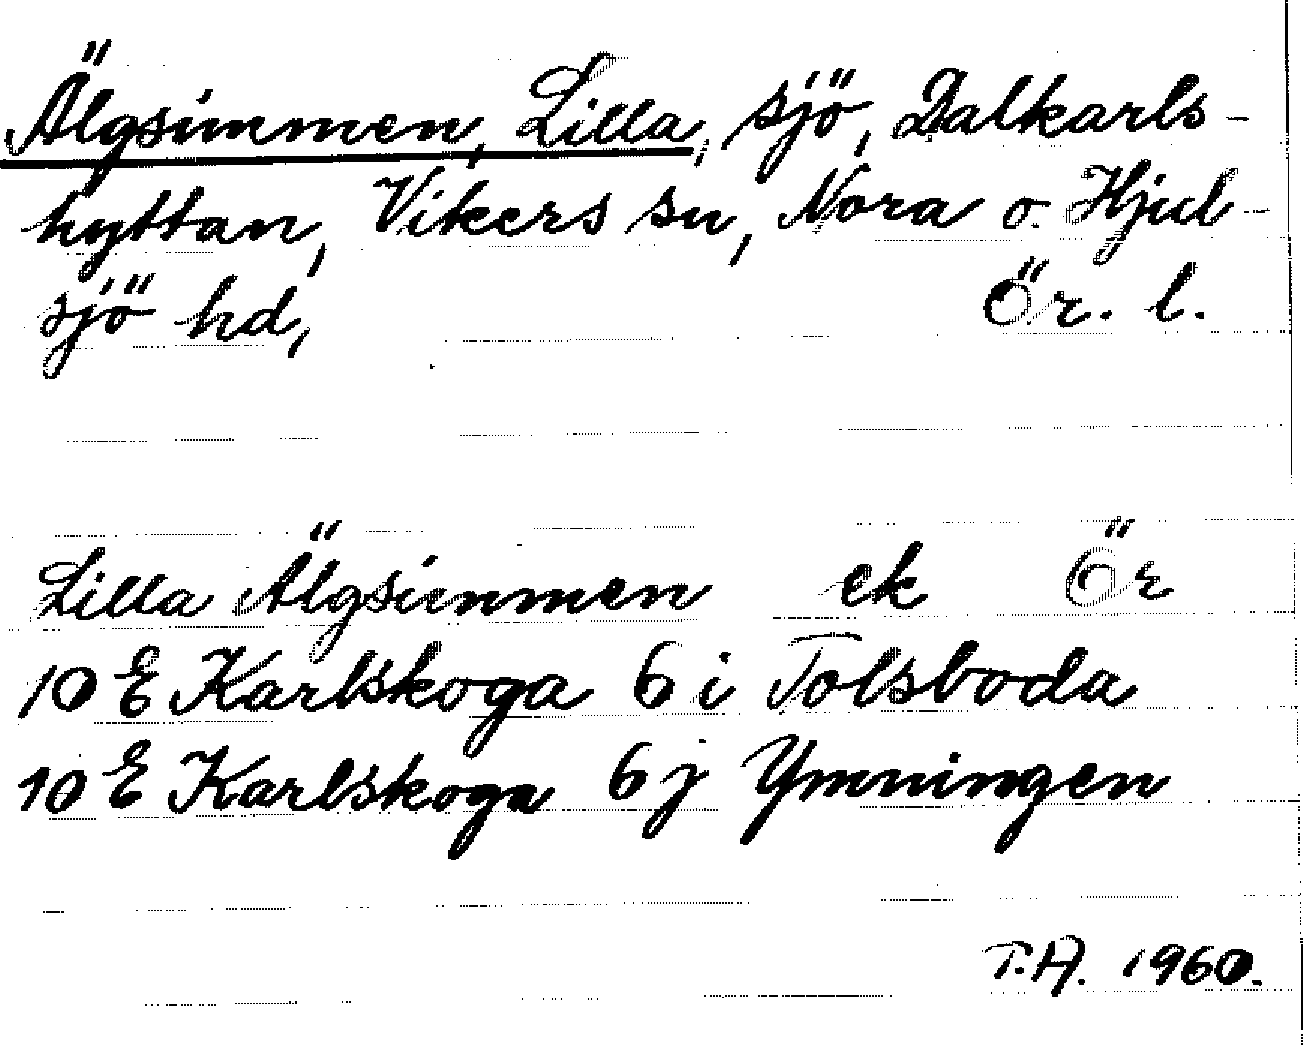 Älgsimmen, Lilla, sjö, Dalkarls-
hyttan, Vikers sn, Nora o. Hjul-
sjö hd, Ör. l.
Lilla Älgsimmen ek Ör
10 E Karlskoga 6 i Tolsboda
10 E Karlskoga 6 j Ymningen
T.A. 1960.